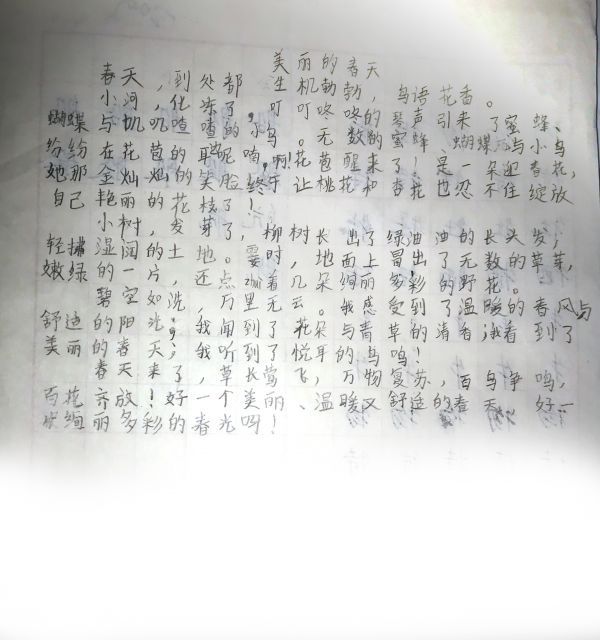 美丽的春天
春天,到处都生机勃勃,鸟语花香。
小河化冻了,叮叮咚咚的琴声引来了蜜蜂、
蝴蝶与叽叽喳喳的小鸟。无数的蜜蜂、蝴蝶与小鸟
纷纷在花苞的耳边呢喃,啊!花苞醒来了!是一朵迎春花,
她那金灿灿的笑脸终于让桃花和杏花也忍不住绽放
自己艳丽的花枝了!
小树发芽了,柳树长出了绿油油的长头发;
轻拂湿润的土地,霎时,地面上冒出了无数的草芽,
嫩绿的一片,还点zhui着几朵绚丽多彩的野花。
碧空如洗,万里无云。我感受到了温暖的春风与
舒适的阳光;我闻到了花朵与青草的清香;我看到了
美丽的春天;我听到了悦耳的鸟鸣!
春天来了,草长莺飞,万物复苏,百鸟争鸣,
百花齐放!好一个美丽、温暖又舒适的春天!好一
绚丽多彩的春光!